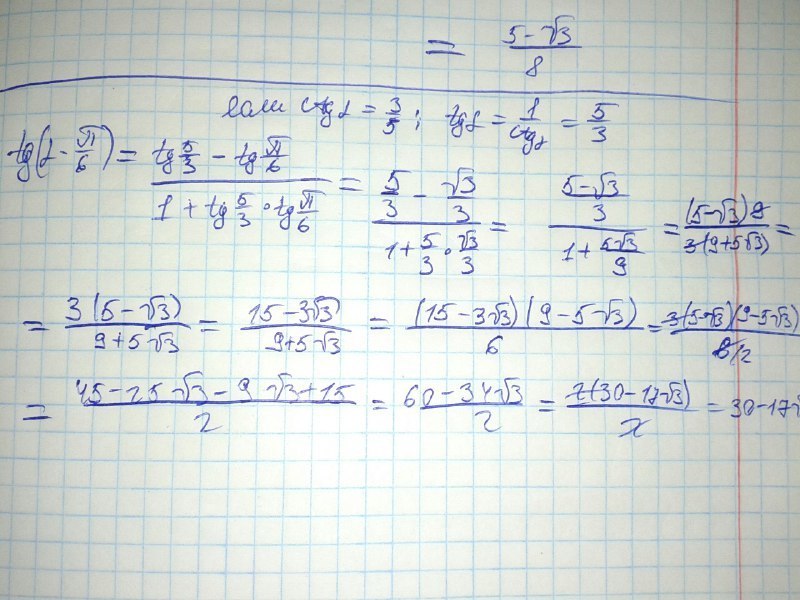 = (5-√3)/8
если ctgα = 3/5; tgα = 1/ctgα = 5/3
tg(α - π/6) = (tg 5/3 - tg π/6)/(1 + tg 5/3 · tg π/6) = (5/3 - √3/3)/(1 + 5/3 · √3/3) = ((5-√3)/3)/(1 + 5√3/9) = ((5-√3)9)/(3(9+5√3)) =
= (3(5-√3))/(9+5√3) = (15-3√3)/(9+5√3) = ((15-3√3)(9-5√3))/6 = (3(5-√3)(9-5√3))/(6/2)
= (45-25√3-9√3+15)/2 = (60-34√3)/2 = (2(30-17√3))/2 = 30-17√